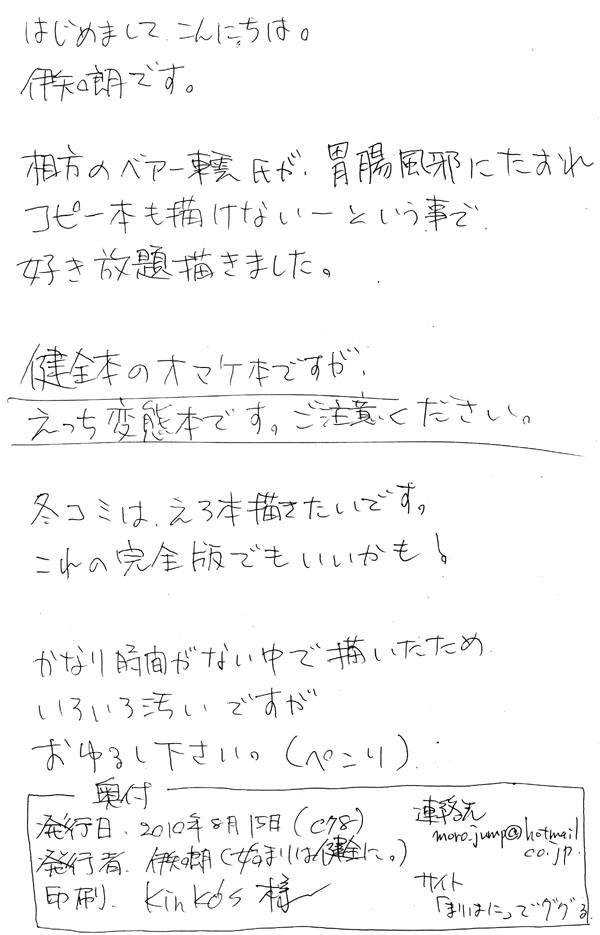 はじめまして、こんにちは。
伊矢口朗です。
相方のベアー轟氏が、胃腸風邪にたおれ
コピー本も描けないーという事で
好き放題描きました。
健全本のオマケ本ですが、
えっち変態本です。ご注意ください。
冬コミは、えろ本描きたいです。
これの完全版でもいいかも!
かなり時間がない中で描いたため
いろいろ汚いですが
おゆるし下さい。(ぺこり)
奥付
発行日、2010年8月15日(C78)
発行者、伊矢口朗(始まりは健全に。)
印刷、Kinko's様
連絡先
moro_jump@hotmail
co.jp
サイト
「まりはに」でググる